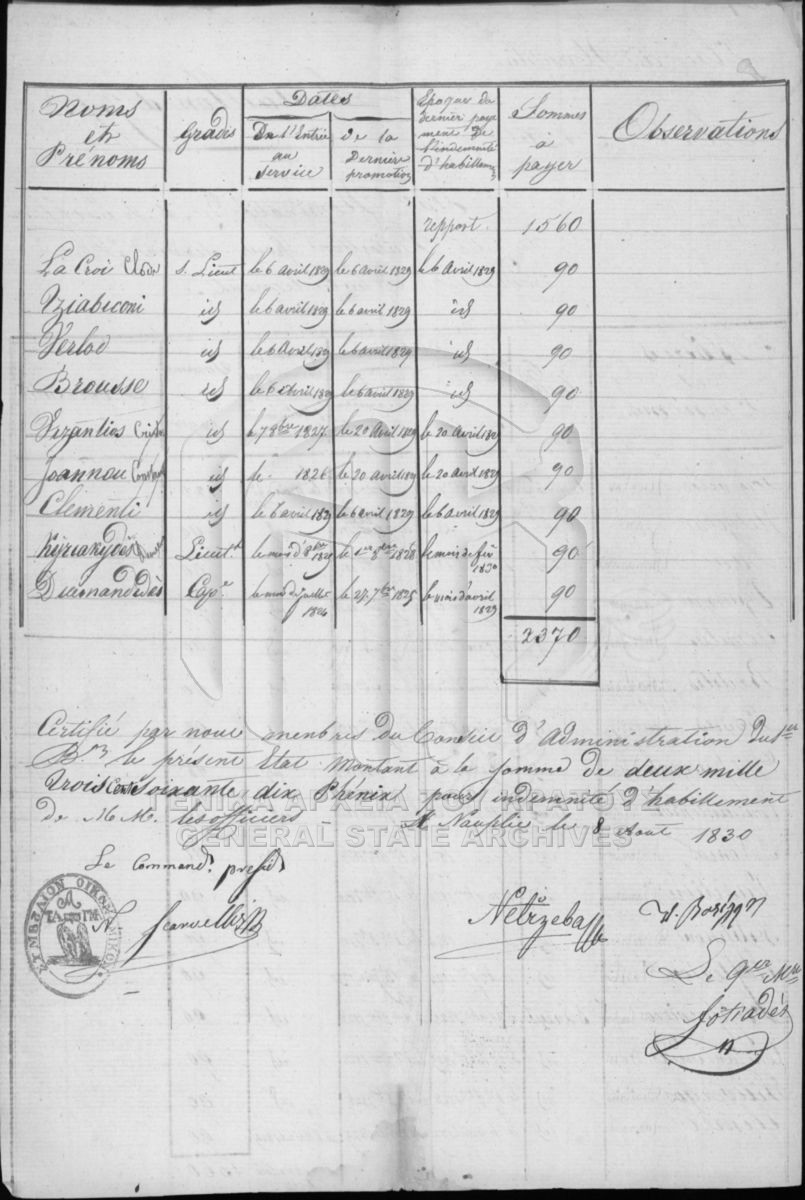 Noms et Prénoms | Grades | Dates | Epoque du dernier payement de l'indemnité d'habillem | Sommes à payer | Observations
De l'Entrée au service | De la Dernière promotion
repport. 1560
La Croi | s. Lieut | le 6 avril 1829 | le 6 avril 1829 | le 6 avril 1829 | 90
Tziabiconi | id | le 6 avril 1829 | le 6 avril 1829 | id | 90
Verloc | id | le 6 avril 1829 | le 6 avril 1829 | id | 90
Brousse | id | le 6 avril 1829 | le 6 avril 1829 | id | 90
Vezantios | id | le 7 8bre 1827 | le 20 Avril 1829 | le 20 Avril 1829 | 90
Joannou | id | le - 1826 | le 20 avril 1829 | le 20 avril 1829 | 90
Clementi | id | le 6 avril 1829 | le 6 avril 1829 | le 6 avril 1829 | 90
Kyriakydes | Lieut.t | le mois d' 8bre | le 1er 8bre 1828 | le mois de fev 1830 | 90
Diamandidès | Cap.e | le mois de juillet 1824 | le 27. 7bre 1825 | le mois d'avril 1829 | 90
2370
Certifié par nous menbres du Conseil d'Administration du 1er
B.on le présent Etat montant à la somme de deux mille
trois Cents soixante dix Phénix pour indemnité d'habillement
de M.M. les officiers - Nauplie le 8 Aout 1830
ΓΕΝΙΚΑ ΑΡΧΕΙΑ ΤΟΥ ΚΡΑΤΟΥΣ
GENERAL STATE ARCHIVES
Le Command.t presid.t
ΣΥΜΒΟΥΛΙΟΝ ΟΙΚΟΝΟΜΙΚΟΝ
Α
ΤΑΓΜ
Le Qer Mre
fotiadès